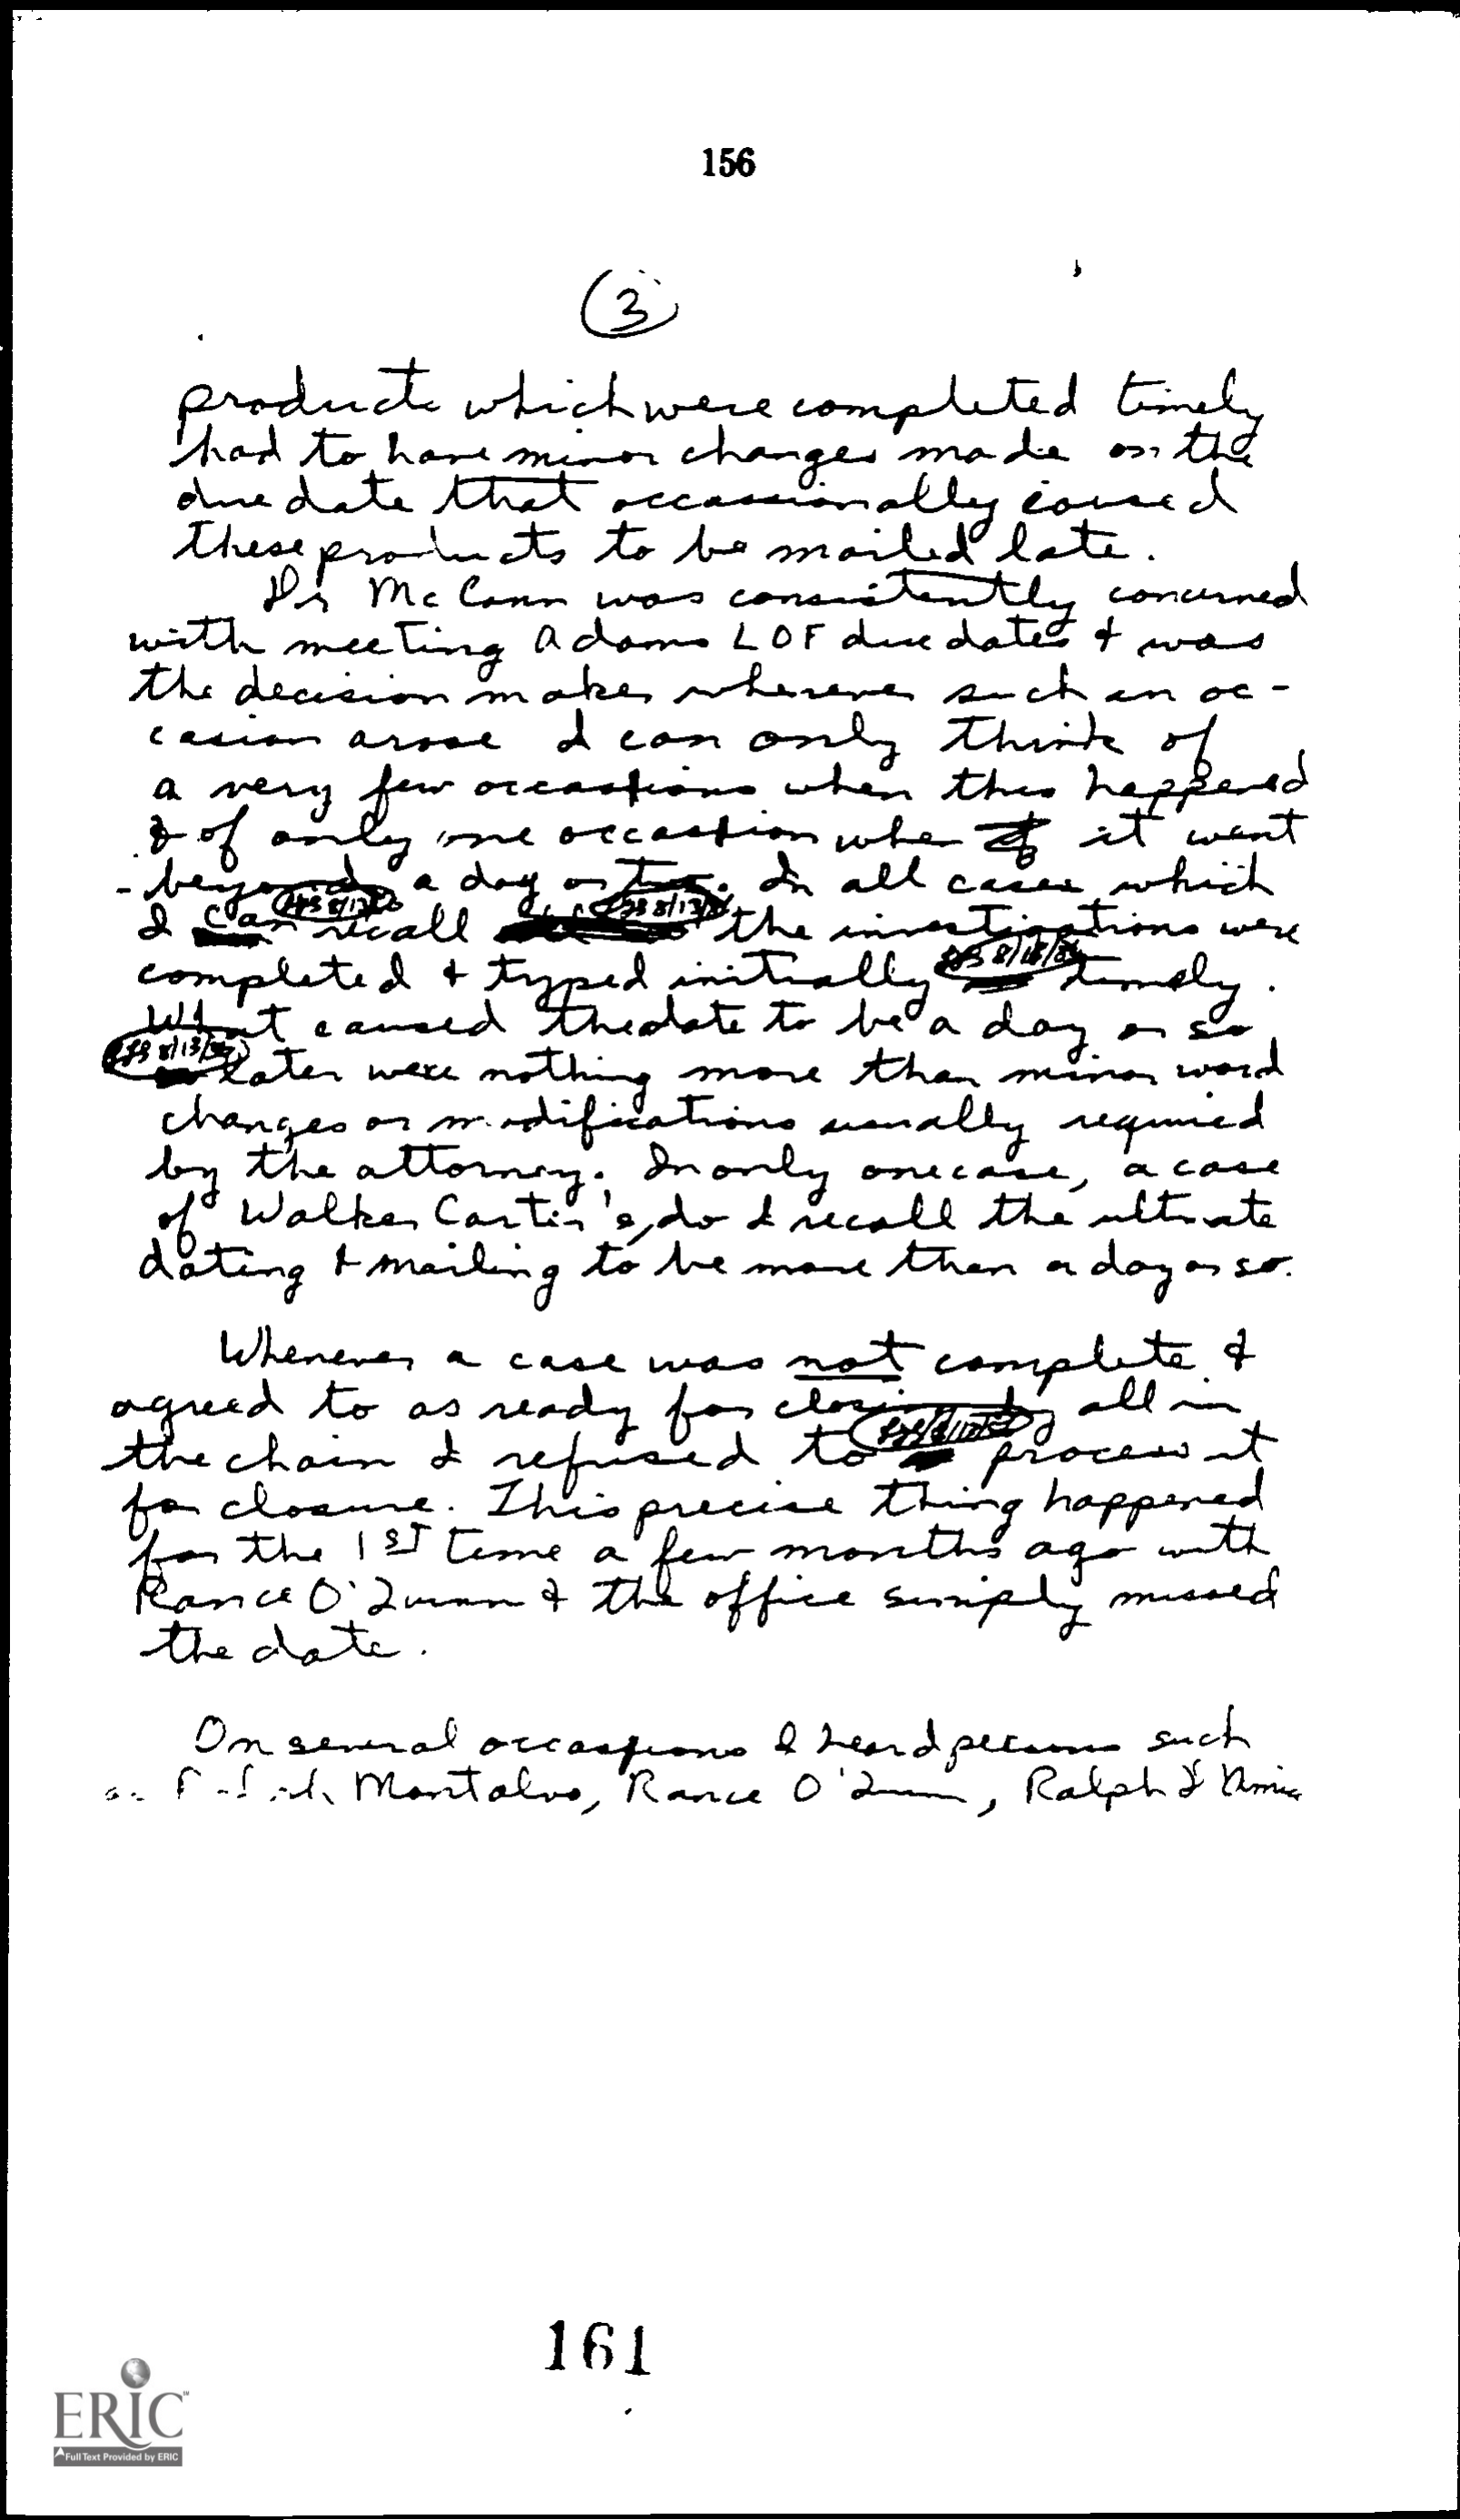 156
3
products which were completed timely
had to have minor changes made on the
due date that occassionally caused
these products to be mailed late.
Dr McCann was consistently concerned
with meeting Adams LOF due dates & was
the decision maker whenever such an oc-
casion arose I can only think of
a very few occastions when this happened
& of only one occastion when it went
beyond a day or two. In all cases which
I can recall the investigations were
completed & typed initially timely.
What caused the date to be a day or so
later were nothing more than minor word
changes or modifications usually required
by the attorney. In only one case, a case
of Walker Carter's, do I recall the ultimate
dating & mailing to be more than a day or so.
Whenever a case was not complete &
agreed to as ready for closing by all in
the chain I refused to process it
for closure. This precise thing happened
for the 1ST time a few months ago with
Rance O'Quinn & the office simply missed
the date.
On several occassions I heard persons such
Montalvo, Rance O'Quinn, Ralph
161
ERIC
Full Text Provided by ERIC